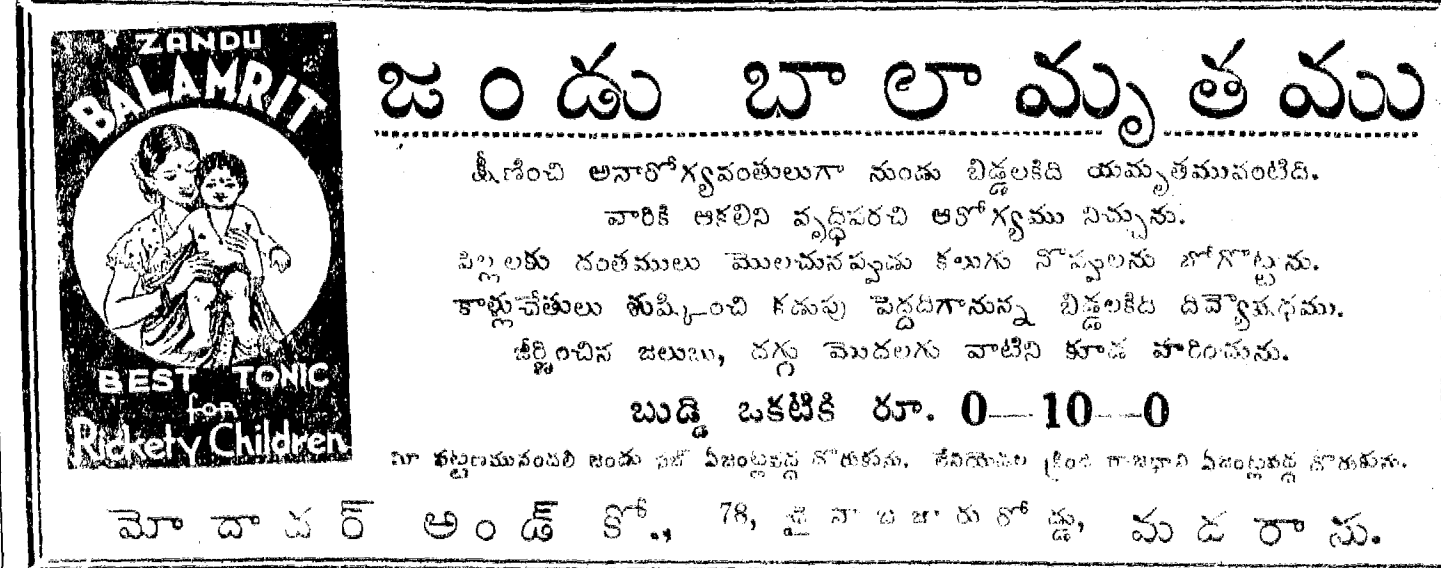 ZANDU
BALAMRIT
BEST TONIC
for
Rickety Children
జండు బాలామృతము
క్షీణించి అనారోగ్యవంతులుగా నుండు బిడ్డలకిది యమృతమువంటిది.
వారికి ఆకలిని వృద్ధిపరచి ఆరోగ్యము నిచ్చును.
పిల్లలకు దంతములు మొలచునప్పుడు కలుగు నొప్పులను బోగొట్టును.
కాళ్లుచేతులు శుష్కించి కడుపు పెద్దదిగానున్న బిడ్డలకిది దివ్యౌషధము.
జీర్ణించిన జలుబు, దగ్గు మొదలగు వాటిని కూడ హరించును.
బుడ్డి ఒకటికి రూ. 0—10—0
మీ పట్టణమునందలి జండు సబ్ ఏజంట్లవద్ద దొరుకును. లేనియెడల క్రింది రాజధాని ఏజంట్లవద్ద దొరుకును.
మోదావర్ అండ్ కో., 78, చైనాబజారురోడ్డు, మదరాసు.